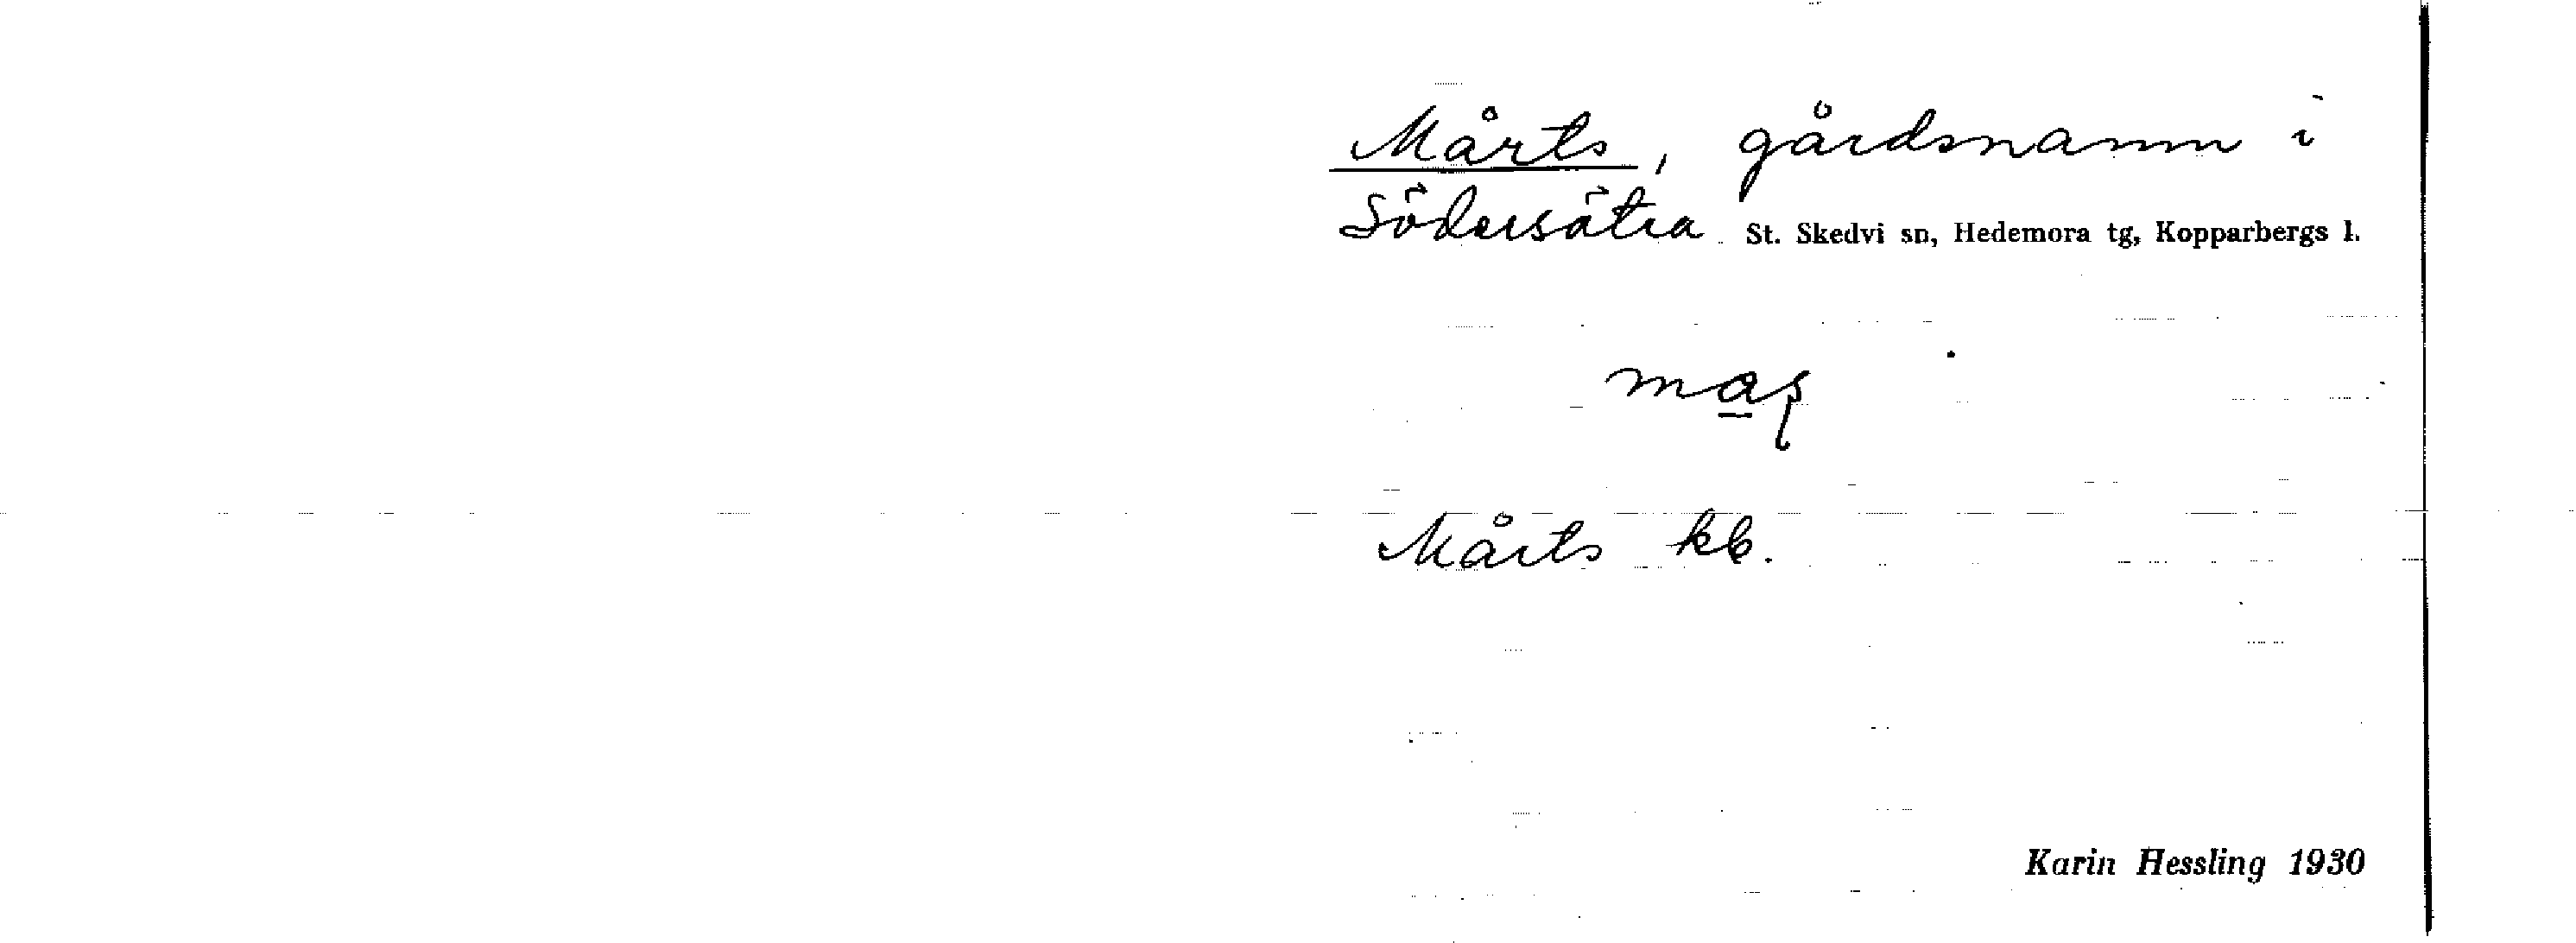 Mårts, gårdsnamn i
Södersätra St. Skedvi sn, Hedemora tg, Kopparbergs l.
Mårts kb.
Karin Hessling 1930